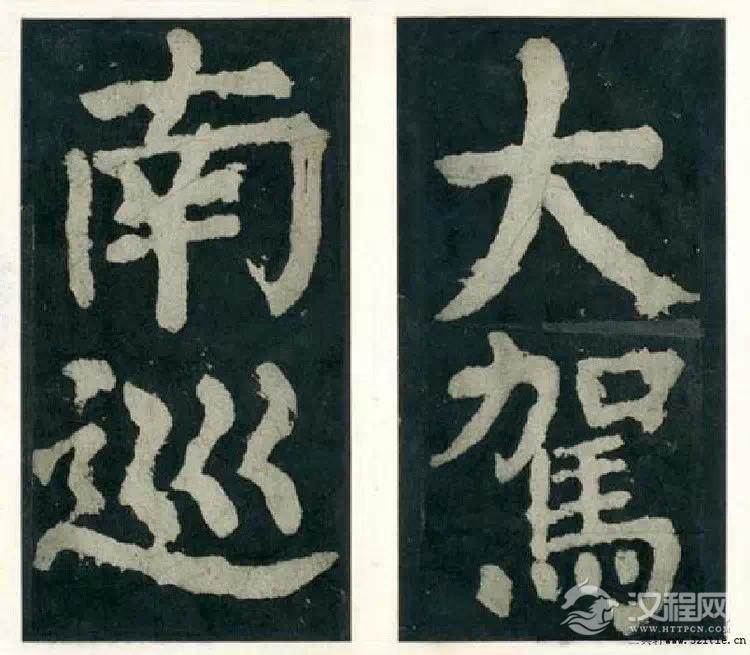 大駕
南巡
汉程网
WWW.HTTPCN.COM